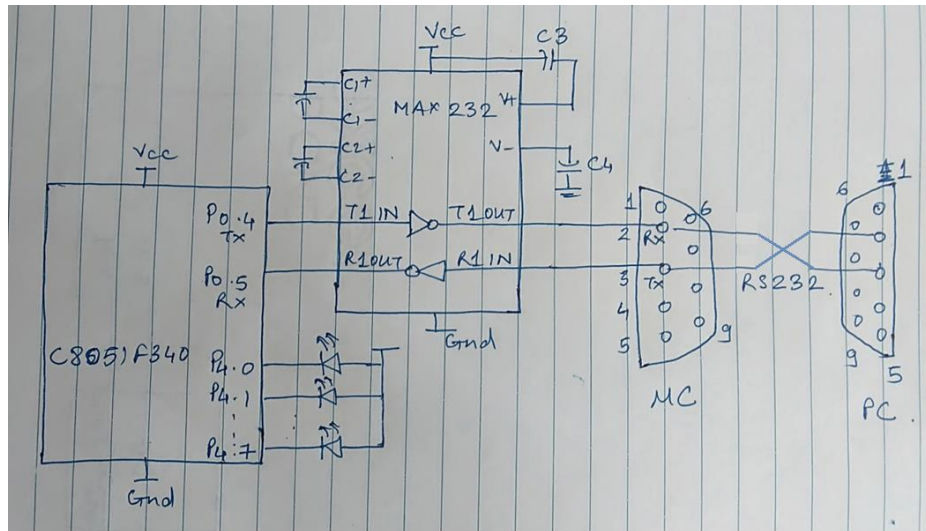 Vcc
C3
C1+
C1-
C2+
C2-
MAX 232
V+
V-
C4
Vcc
P0.4
Tx
T1 IN
T1 OUT
P0.5
Rx
R1OUT
R1 IN
Gnd
C8051F340
P4.0
P4.1
P4.7
Gnd
1
2
3
4
5
6
9
Rx
Tx
MC
RS232
6
1
9
5
PC